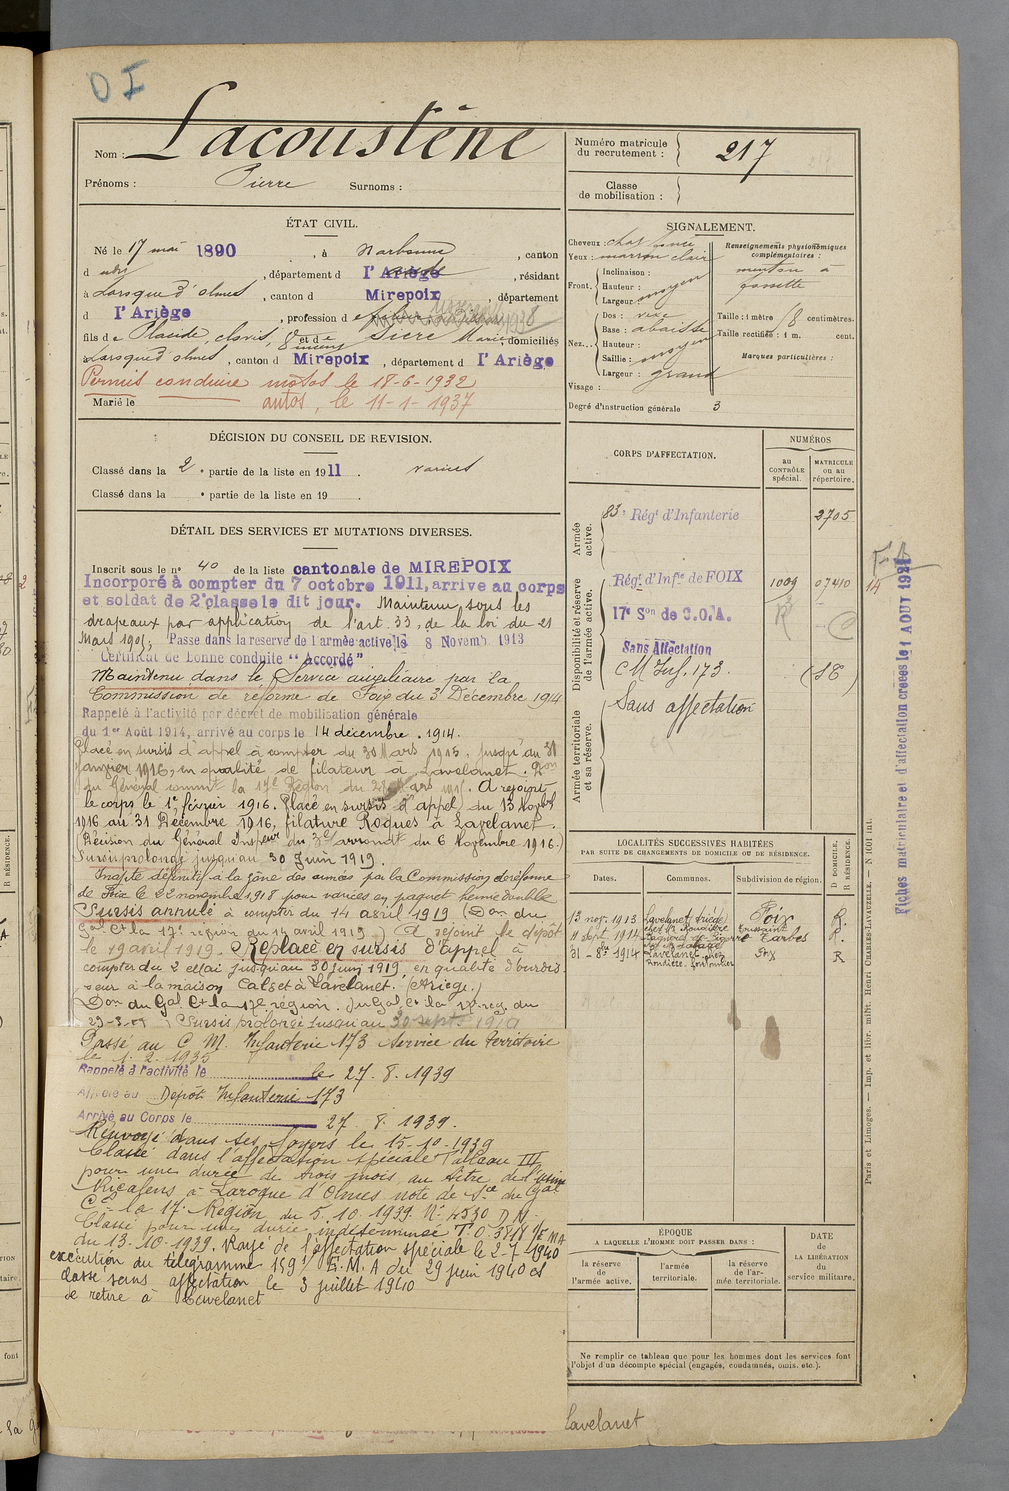 Lacoustène
Nom :
Prénoms : Pierre Surnoms :
Numéro matricule
du recrutement : 217
Classe
de mobilisation :
ÉTAT CIVIL.
Né le 17 mai 1890, à Narbonne, canton
d udit, département d l'Ariège aude, résidant
à Laroque d'olmes, canton d Mirepoix, département
d l'Ariège, profession d
fils d e Plaude, clovis, et d e Sicre Marie, domiciliés
à Laroque d'olmes, canton d Mirepoix, département d l'Ariège
Permis conduire motos le 18-6-1932
Marié le autos, le 11-1-1937
DÉCISION DU CONSEIL DE REVISION.
Classé dans la 2 e partie de la liste en 1911. varices
Classé dans la e partie de la liste en 19 .
DÉTAIL DES SERVICES ET MUTATIONS DIVERSES.
Inscrit sous le n° 40 de la liste cantonale de MIREPOIX
Incorporé à compter du 7 octobre 1911, arrive au corps
et soldat de 2e classe le dit jour. Maintenu sous les
drapeaux par application de l'art. 33, de la loi du 21
Mars 1905; Passé dans la réserve de l'armée active le 8 Novemb 1913
Certificat de bonne conduite "Accordé"
Maintenu dans le Service auxiliaire par la
Commission de réforme de Foix du 3 Décembre 1914
Rappelé à l'activité par décret de mobilisation générale
du 1er Août 1914, arrivé au corps le 14 décembre . 1914.
Placé en sursis d'appel à compter du 30 Mars 1915, jusqu'au 31
Janvier 1916, en qualité de filateur à Lavelanet. Don
du Général commt la 17e Région du 27 Mars 1915. A rejoint
le corps le 1er février 1916. Placé en sursis d'appel du 13 Novbre
1916 au 31 Décembre 1916, filature Roques à Lavelanet.
(Décision du Général Inspeur du 3e arrondt du 6 Novembre 1916.)
Sursis prolongé jusqu'au 30 Juin 1919.
Inapte définitif à la zône des armées par la Commission de réforme
de Foix le 22 novembre 1918 pour varices en paquet hernie double
Sursis annulé à compter du 14 avril 1919 (Don du
Gal Ct la 17e région du 14 avril 1919) A rejoint le dépôt
le 19 avril 1919. Replacé en sursis d'appel à
compter du 2 Mai jusqu'au 30 juin 1919, en qualité d'ourdis-
seur à la maison Calset à Lavelanet. (Ariège.)
Don du Gal Ct la 17e région. du Gal Ct la 17e reg. du
Sursis prolongé jusqu'au 30 sept 1919
Passé au C. M. Infanterie 173 Service du territoire
le 1. 2. 1935
Rappelé à l'activité le le 27. 8. 1939
Affecté au Dépôt Infanterie 173
Arrivé au Corps le 27. 8. 1939.
Renvoyé dans ses foyers le 15-10-1939
Classé dans l'affectation spéciale Tableau III
pour une durée de trois mois, au titre de l'usine
Ricalens à Laroque d'Olmes note de Sce du Gal
Ct la 17e Région du 5. 10. 1939. N° 4530 D N.
Classé pour une durée indéterminée T.O. 3818 /E M A
du 13-10-1939. Rayé de l'affectation spéciale le 2-7-1940
exécution du télégramme 1591 E. M. A du 29 juin 1940 et
classé sans affectation le 3 juillet 1940
se retire à Lavelanet
SIGNALEMENT.
Cheveux : chat foncé
Yeux : marron clair
Front. Inclinaison :
Hauteur : moyen
Largeur :
Nez. Dos : rexe
Base : abaissée
Hauteur :
Saillie : moyen
Largeur : grand
Visage :
Degré d'instruction générale 3
Renseignements physionomiques
complémentaires :
menton à
fossette
Taille : 1 m. 8 centimètres.
Taille rectifiée : 1 m. cent.
Marques particulières :
CORPS D'AFFECTATION.
NUMÉROS
au
CONTRÔLE
spécial.
MATRICULE
ou au
répertoire.
Armée
active.
83e Régt d'Infanterie 2705
Disponibilité et réserve
de l'armée active.
Régt d'Infie de FOIX 1009 07410
17e Son de C.O.A.
Sans Affectation
C M Inf. 173. (S C)
Armée territoriale
et sa réserve.
Sans affectation
14
Fiches matriculaire et d'affectation créées le 1 AOUT 192
LOCALITÉS SUCCESSIVES HABITÉES
PAR SUITE DE CHANGEMENTS DE DOMICILE OU DE RÉSIDENCE.
Dates. Communes. Subdivision de région. D DOMICILE, R RÉSIDENCE.
13 nov. 1913 Lavelanet Foix R.
11 sept. 1914 Tarbes R.
31 8bre 1914 Lavelanet chez Foix R
ÉPOQUE
A LAQUELLE L'HOMME DOIT PASSER DANS :
la réserve
de
l'armée active.
l'armée
territoriale.
la réserve
de l'ar-
mée territoriale.
DATE
de
LA LIBÉRATION
du
service militaire.
Ne remplir ce tableau que pour les hommes dont les services font
l'objet d'un décompte spécial (engagés, condamnés, omis, etc.).
Lavelanet
Paris et Limoges. — Imp. et libr. milit. Henri CHARLES-LAVAUZELLE.